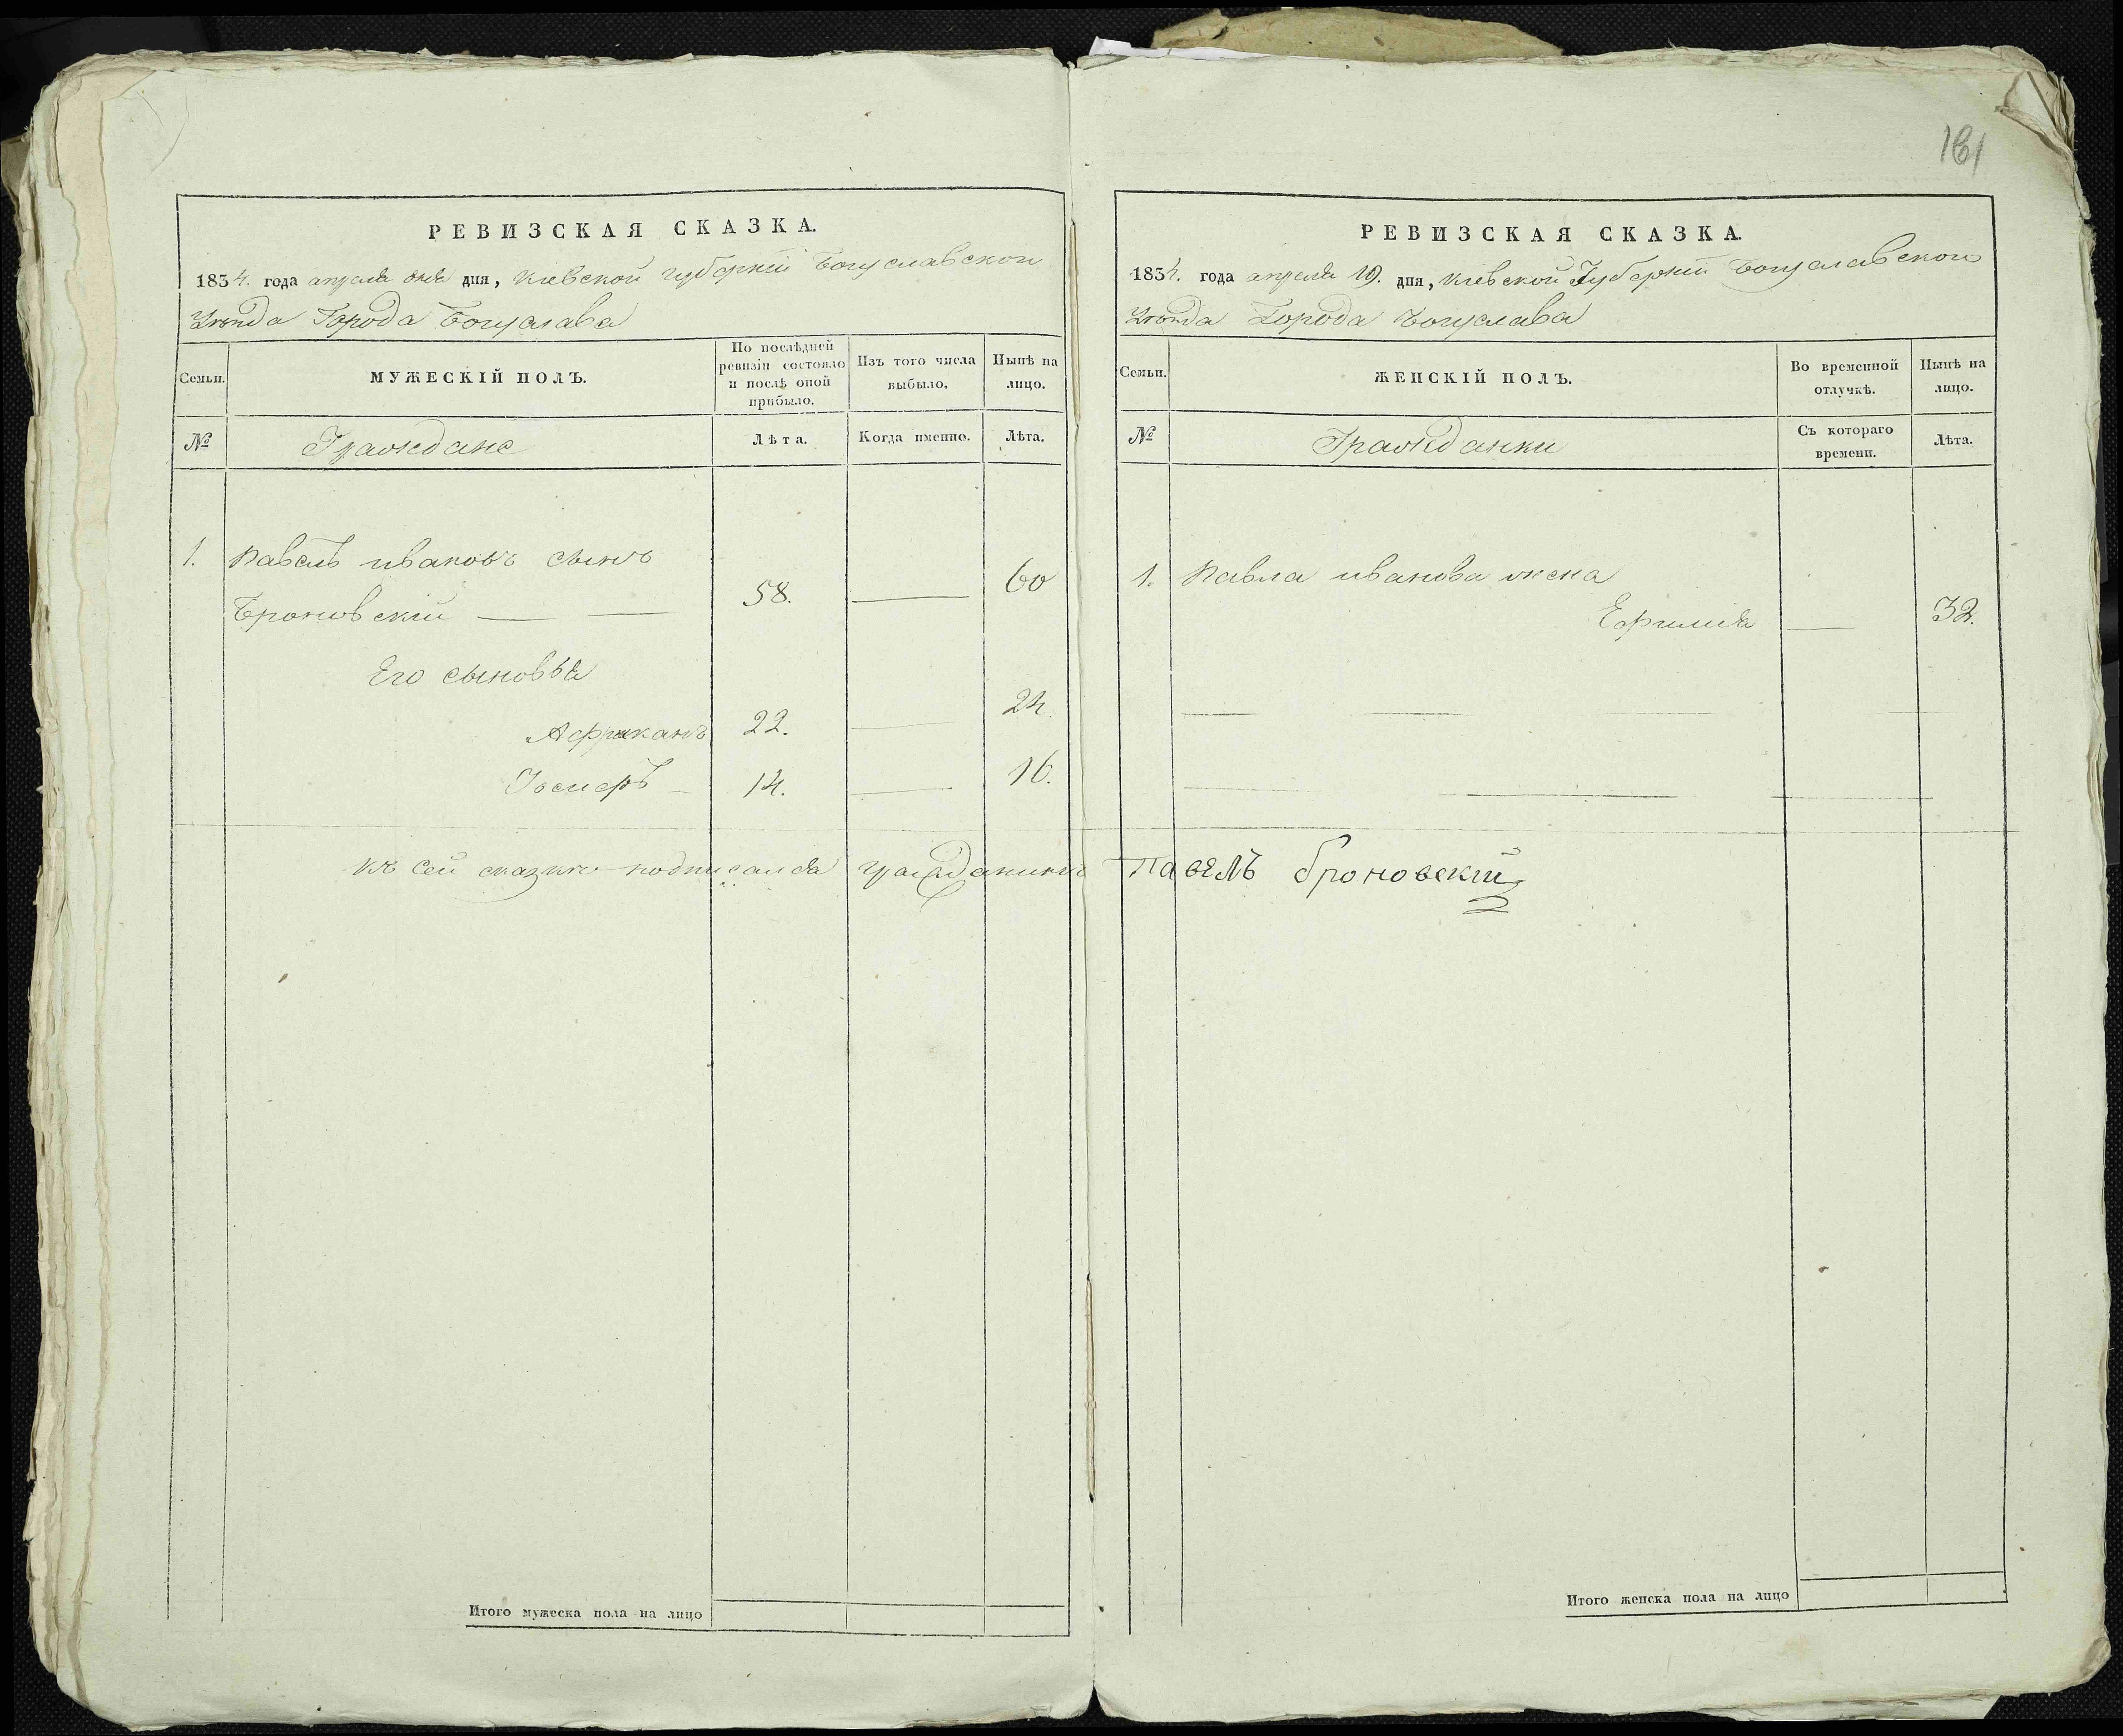 161
РЕВИЗСКАЯ СКАЗКА.
1834. года апреля дня, Киевской губернiи Богуславской
Уѣзда Города Богуслава
Семьи.
МУЖЕСКІЙ ПОЛЪ.
По послѣдней
ревизіи состояло
и послѣ оной
прибыло.
Изъ того числа
выбыло.
Нынѣ на
лицо.
№
Граждане
Лѣта.
Когда именно.
Лѣта.
1. Павелъ ивановъ сынъ
Броновскiй 58. 60
Его сыновья
Африканъ 22. 24.
Іосифъ 14. 16.
Къ сей сказке подписался гражданинъ Павелъ броновскiй
Итого мужеска пола на лицо
РЕВИЗСКАЯ СКАЗКА.
1834. года апреля 19. дня, Киевской Губернiи Богуславской
Уѣзда Города Богуслава
Семьи.
ЖЕНСКІЙ ПОЛЪ.
Во временной
отлучкѣ.
Нынѣ на
лицо.
№
Гражданки
Съ котораго
времени.
Лѣта.
1. Павла иванова жена
Ефимия 32.
Итого женска пола на лицо